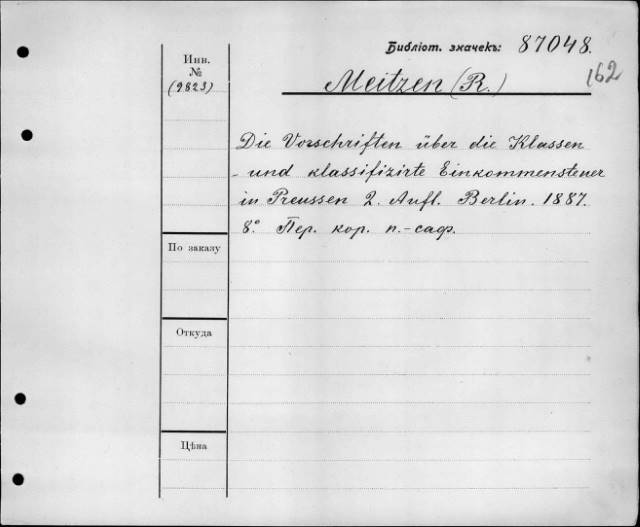 Библіот. значекъ: 87048.
162
Инв.
№
(9823)
Meitzen (R.)
Die Vorschriften über die Klassen
- und klassifizirte Einkommensteuer
in Preussen 2. Aufl. Berlin. 1887.
8° Пер. кор. п.-саф.
По заказу
Откуда
Цѣна